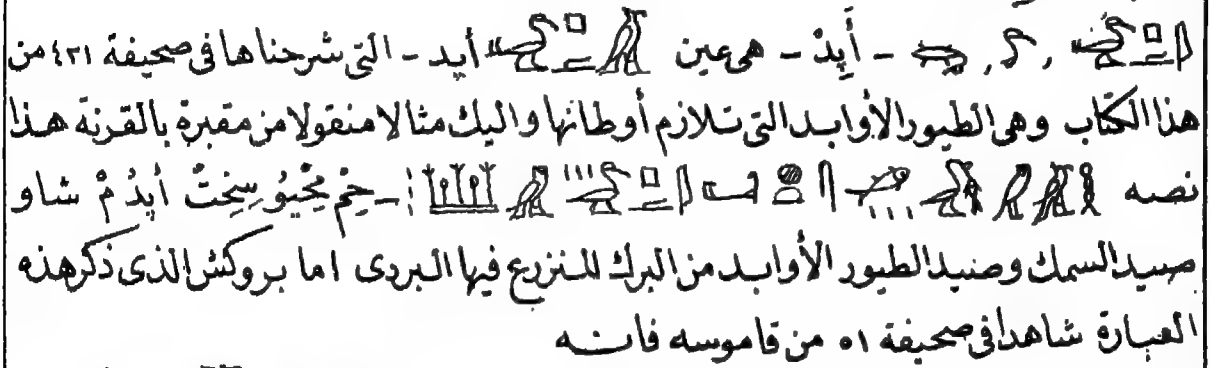 - أَپِدْ - هى عين أپد - التى شرحناها فى صحيفة ٤٢١ من
هذا الكتاب وهى الطيور الأوابد التى تلازم أوطانها واليك مثالا منقولا من مقبرة بالقرنة هذا
نصه - حِمْ سِخِتْ أپدُ مْ شاو
صيد السمك وصيد الطيور الأوابد من البرك المنزرع فيها البردى اما بروكش الذى ذكر هذه
العبارة شاهدا فى صحيفة ٥١ من قاموسه فانه